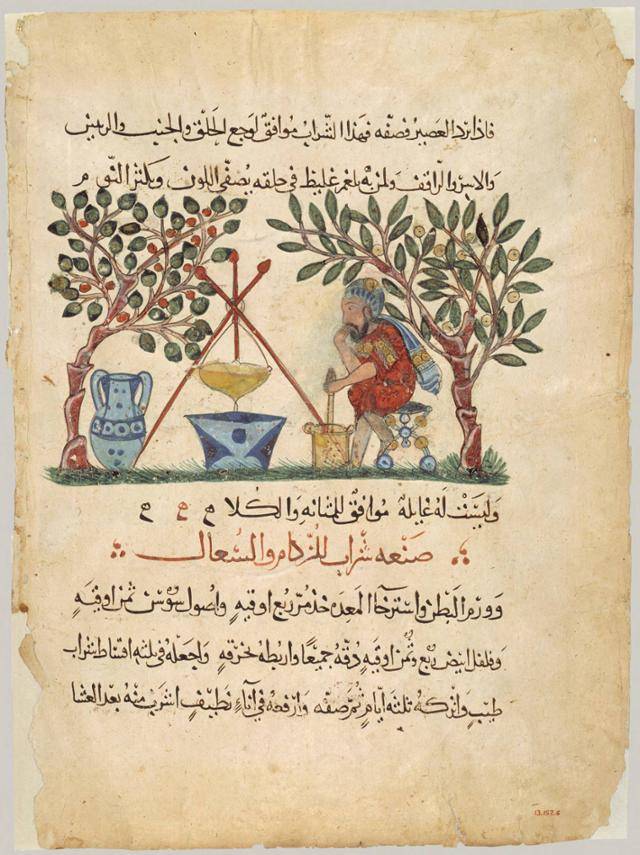 فاذا برد العصير فصفه فهذا الشراب موافق لوجع الحلق والجنب والرئتين
والاسر والراقف ولمن به بلغم غليظ في حلقه يصفي اللون ويكثر النوم م
وليست له غايلة موافق للمثانه والكلا م م م
صنعه شراب للزكام والسعال
وورم البطن واسترخا المعده خذ مر ربع اوقيه واصول سوسن ثمن اوقيه
وفلفل ابيض ربع وثمن اوقيه دقه جميعا واربطه بخرقه واجعله في ثلثه اقساط شراب
طيب واتركه ثلثه ايام ثم صفه وارفعه في اناء نظيف اشرب منه بعد العشا
13.152.6